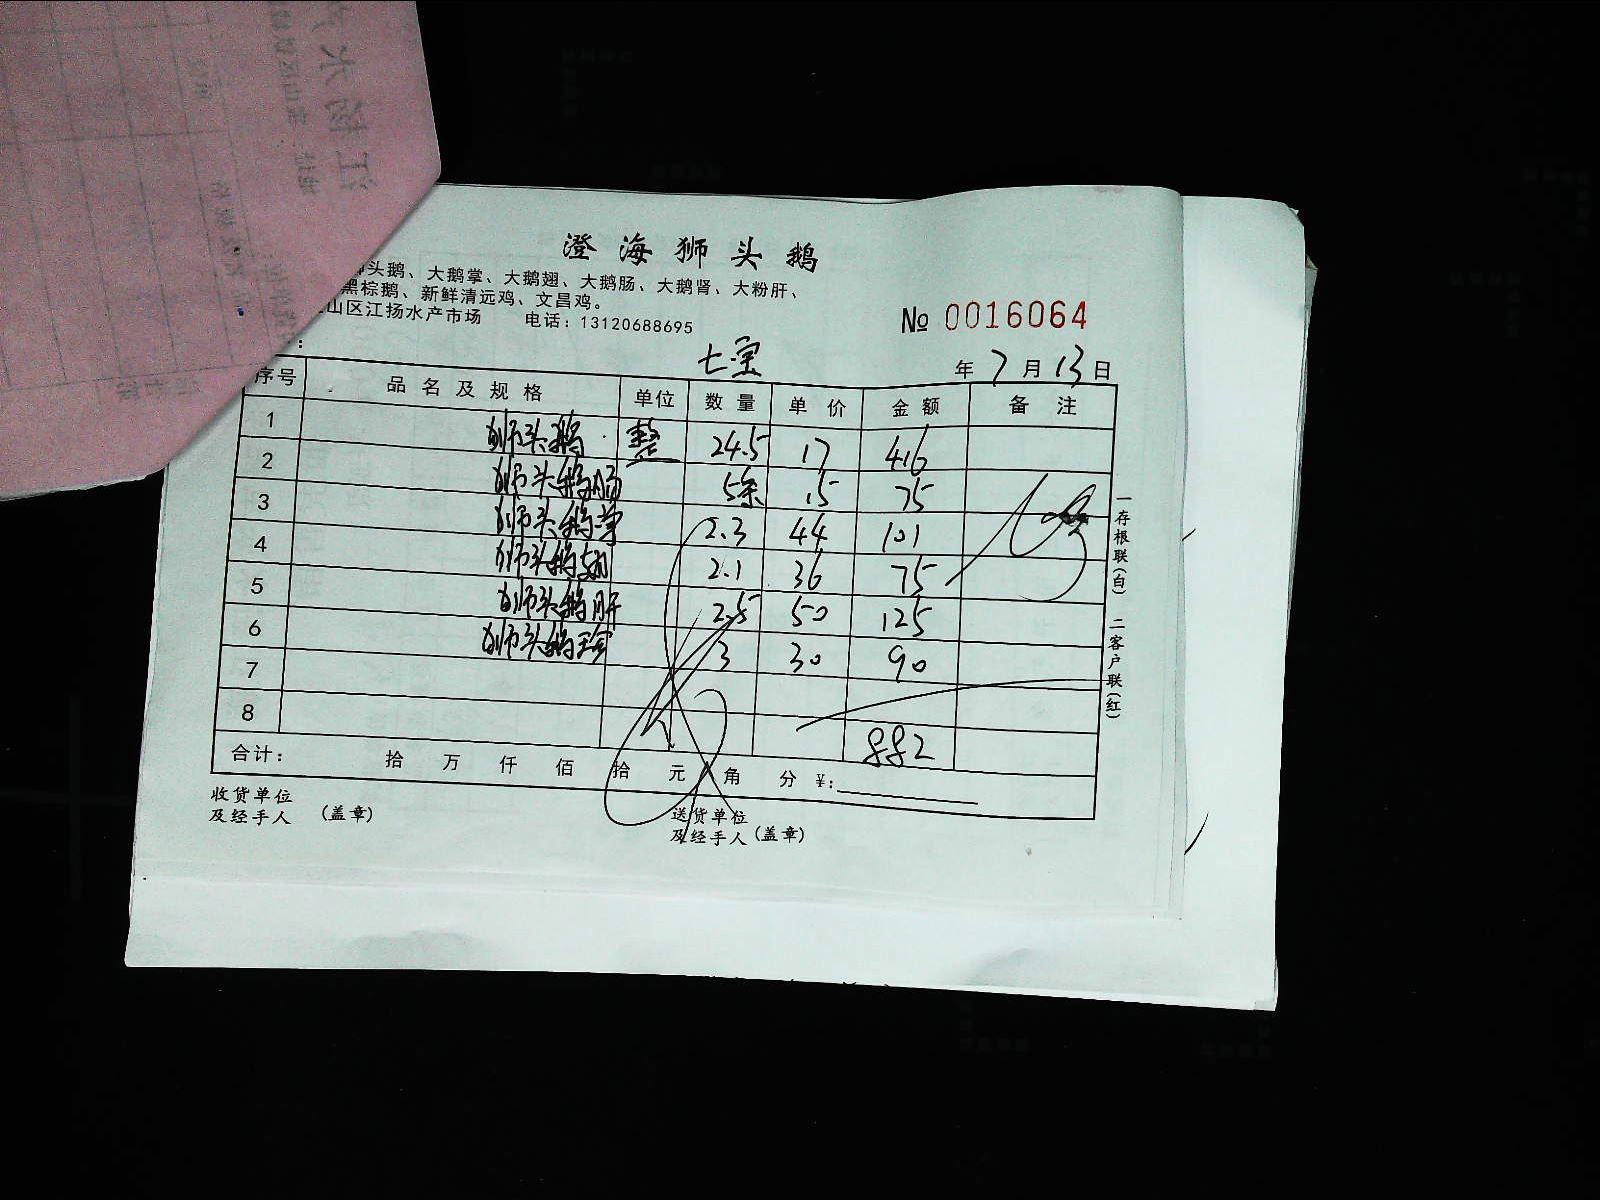 澄海狮头鹅
狮头鹅、大鹅掌、大鹅翅、大鹅肠、大鹅肾、大粉肝、
黑棕鹅、新鲜清远鸡、文昌鸡。
山区江扬水产市场 电话:13120688695
№ 0016064
: 七宝 年 7 月 13 日
序号 品名及规格 单位 数量 单价 金额 备注
1 狮头鹅 整 24.5 17 416
2 狮头鹅肠 5条 15 75
3 狮头鹅掌 2.3 44 101
4 狮头鹅翅 2.1 36 75
5 狮头鹅肝 2.5 50 125
6 狮头鹅珍 3 30 90
7
8 882
合计: 拾 万 仟 佰 拾 元 角 分 ¥:
收货单位
及经手人 (盖章)
送货单位
及经手人 (盖章)
一存根联(白) 二客户联(红)